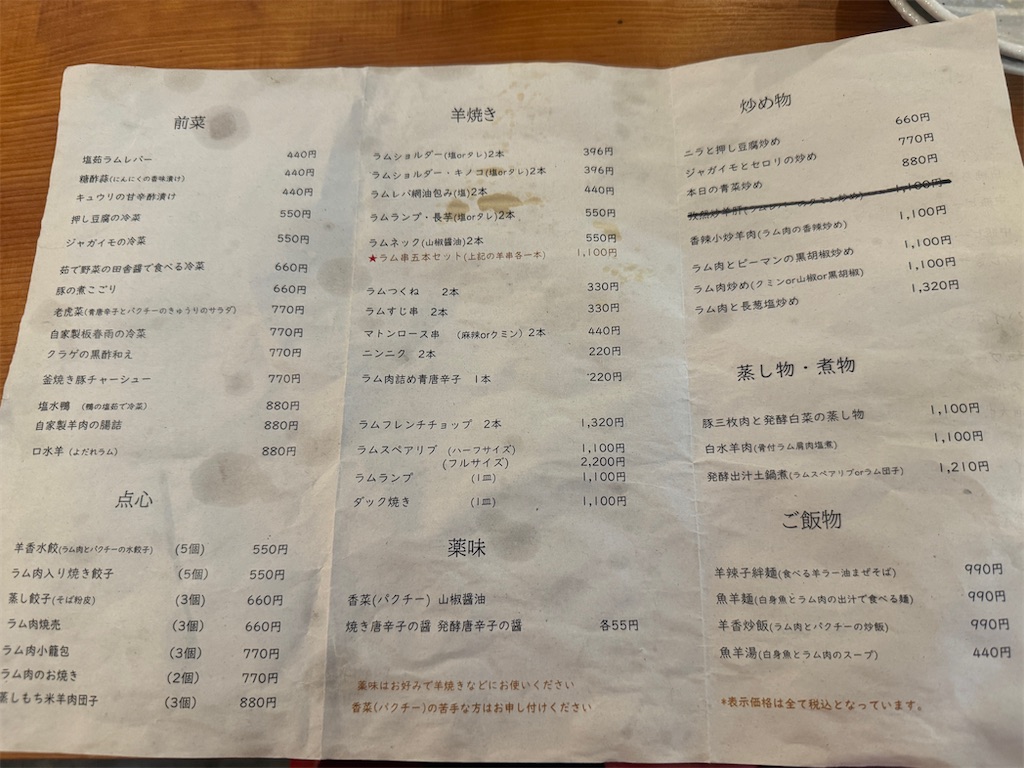 前菜
塩茹ラムレバー 440円
糖酢蒜(にんにくの香味漬け) 440円
キュウリの甘辛酢漬け 440円
押し豆腐の冷菜 550円
ジャガイモの冷菜 550円
茹で野菜の田舎醤で食べる冷菜 660円
豚の煮こごり 660円
老虎菜(青唐辛子とパクチーのきゅうりのサラダ) 770円
自家製板春雨の冷菜 770円
クラゲの黒酢和え 770円
釜焼き豚チャーシュー 770円
塩水鴨 (鴨の塩茹で冷菜) 880円
自家製羊肉の腸詰 880円
口水羊 (よだれラム) 880円
点心
羊香水餃(ラム肉とパクチーの水餃子) (5個) 550円
ラム肉入り焼き餃子 (5個) 550円
蒸し餃子(そば粉皮) (3個) 660円
ラム肉焼売 (3個) 660円
ラム肉小籠包 (3個) 770円
ラム肉のお焼き (2個) 770円
蒸しもち米羊肉団子 (3個) 880円
羊焼き
ラムショルダー(塩orタレ)2本 396円
ラムショルダー・キノコ(塩orタレ)2本 396円
ラムレバ網油包み(塩)2本 440円
ラムランプ・長芋(塩orタレ)2本 550円
ラムネック(山椒醤油)2本 550円
★ラム串五本セット(上記の羊串各一本) 1,100円
ラムつくね 2本 330円
ラムすじ串 2本 330円
マトンロース串 (麻辣orクミン)2本 440円
ニンニク 2本 220円
ラム肉詰め青唐辛子 1本 220円
ラムフレンチチョップ 2本 1,320円
ラムスペアリブ (ハーフサイズ) 1,100円
(フルサイズ) 2,200円
ラムランプ (1皿) 1,100円
ダック焼き (1皿) 1,100円
薬味
香菜(パクチー) 山椒醤油
焼き唐辛子の醤 発酵唐辛子の醤 各55円
薬味はお好みで羊焼きなどにお使いください
香菜(パクチー)の苦手な方はお申し付けください
炒め物
ニラと押し豆腐炒め 660円
ジャガイモとセロリの炒め 770円
本日の青菜炒め 880円
孜然炒羊肝(ラムレバーのクミン炒め) 1,100円
香辣小炒羊肉(ラム肉の香辣炒め) 1,100円
ラム肉とピーマンの黒胡椒炒め 1,100円
ラム肉炒め(クミンor山椒or黒胡椒) 1,100円
ラム肉と長葱塩炒め 1,320円
蒸し物・煮物
豚三枚肉と発酵白菜の蒸し物 1,100円
白水羊肉(骨付ラム肩肉塩煮) 1,100円
発酵出汁土鍋煮(ラムスペアリブorラム団子) 1,210円
ご飯物
羊辣子絆麺(食べる羊ラー油まぜそば) 990円
魚羊麺(白身魚とラム肉の出汁で食べる麺) 990円
羊香炒飯(ラム肉とパクチーの炒飯) 990円
魚羊湯(白身魚とラム肉のスープ) 440円
*表示価格は全て税込となっています。